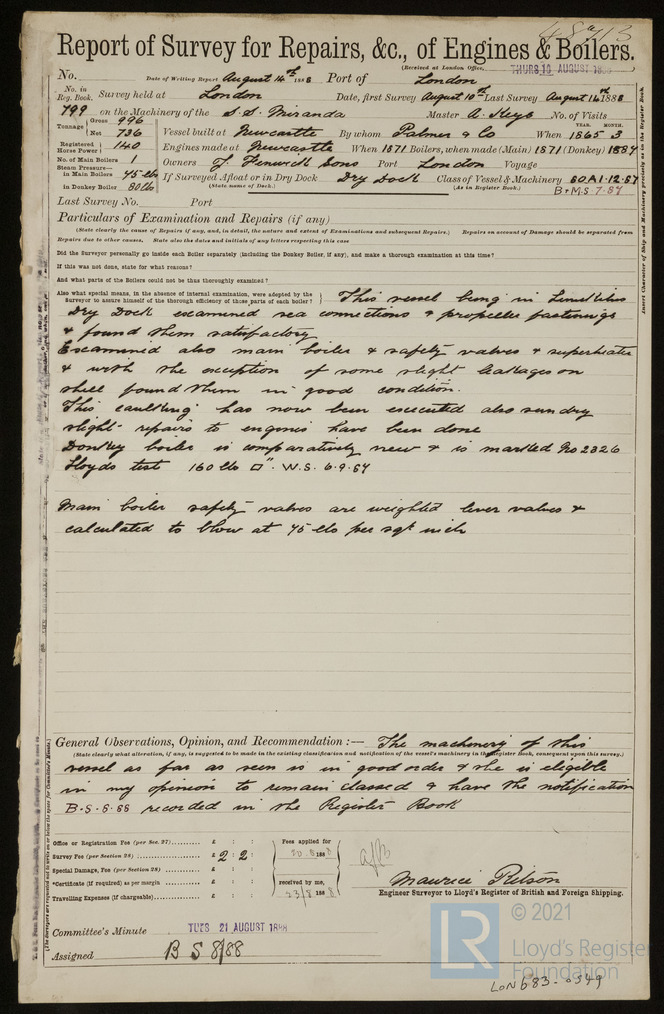 48713
Report of Survey for Repairs, &c., of Engines & Boilers.
(Received at London Office, THURS 16 AUGUST 1888
No. Date of Writing Report August 14th 1888 Port of London
No. in Reg. Book. Survey held at London Date, first Survey August 10th Last Survey August 14th 1888
799 on the Machinery of the S.S. Miranda Master A. Keys No. of Visits
Tonnage Gross 996 Net 736 Vessel built at Newcastle By whom Palmer & Co When 1865 YEAR. 3 MONTH.
Registered Horse Power 140 Engines made at Newcastle When 1871 Boilers, when made (Main) 1871 (Donkey) 1887
No. of Main Boilers 1 Owners J. Fenwick Sons Port London Voyage
Steam Pressure— in Main Boilers 45 lbs If Surveyed Afloat or in Dry Dock Dry Dock Class of Vessel & Machinery 60A1.12.87
in Donkey Boiler 80 lbs (State name of Dock.) (As in Register Book.) B+M.S 7.87
Last Survey No. Port
Particulars of Examination and Repairs (if any)
(State clearly the cause of Repairs if any, and, in detail, the nature and extent of Examinations and subsequent Repairs.) Repairs on account of Damage should be separated from
Repairs due to other causes. State also the dates and initials of any letters respecting this case
Did the Surveyor personally go inside each Boiler separately (including the Donkey Boiler, if any), and make a thorough examination at this time?
If this was not done, state for what reasons?
And what parts of the Boilers could not be thus thoroughly examined?
Also what special means, in the absence of internal examination, were adopted by the
Surveyor to assure himself of the thorough efficiency of those parts of each boiler?
This vessel being in Limekilns
Dry Dock examined sea connections & propeller fastenings
& found them satisfactory
Examined also main boiler & safety valves & superheater
& with the exception of some slight leakages on
shell found them in good condition.
This caulking has now been executed also sundry
slight repairs to engines have been done
Donkey boiler is comparatively new & is marked No 2326
Lloyds test 160 lbs □". W.S. 6.9.87
Main boiler safety valves are weighted lever valves &
calculated to blow at 45 lbs per sqr inch
General Observations, Opinion, and Recommendation :— The machinery of this
(State clearly what alteration, if any, is suggested to be made in the existing classification and notification of the vessel's machinery in the Register Book, consequent upon this survey.)
vessel as far as seen is in good order & she is eligible
in my opinion to remain classed & have the notification
B.S.8.88 recorded in the Register Book
Office or Registration Fee (per Sec. 27) £ : :
Survey Fee (per Section 28) £ 2 : 2 :
Special Damage, Fee (per Section 28) £ : :
*Certificate (if required) as per margin £ : :
Travelling Expenses (if chargeable) £ : :
Fees applied for
20.8.1888
received by me,
23/8 1888
Maurice Ritson
Engineer Surveyor to Lloyd's Register of British and Foreign Shipping.
Committee's Minute TUES 21 AUGUST 1888
Assigned B S 8/88
Insert Character of Ship and Machinery precisely as in the Register Book.
LR © 2021
Lloyd's Register
Foundation
LON683-0549